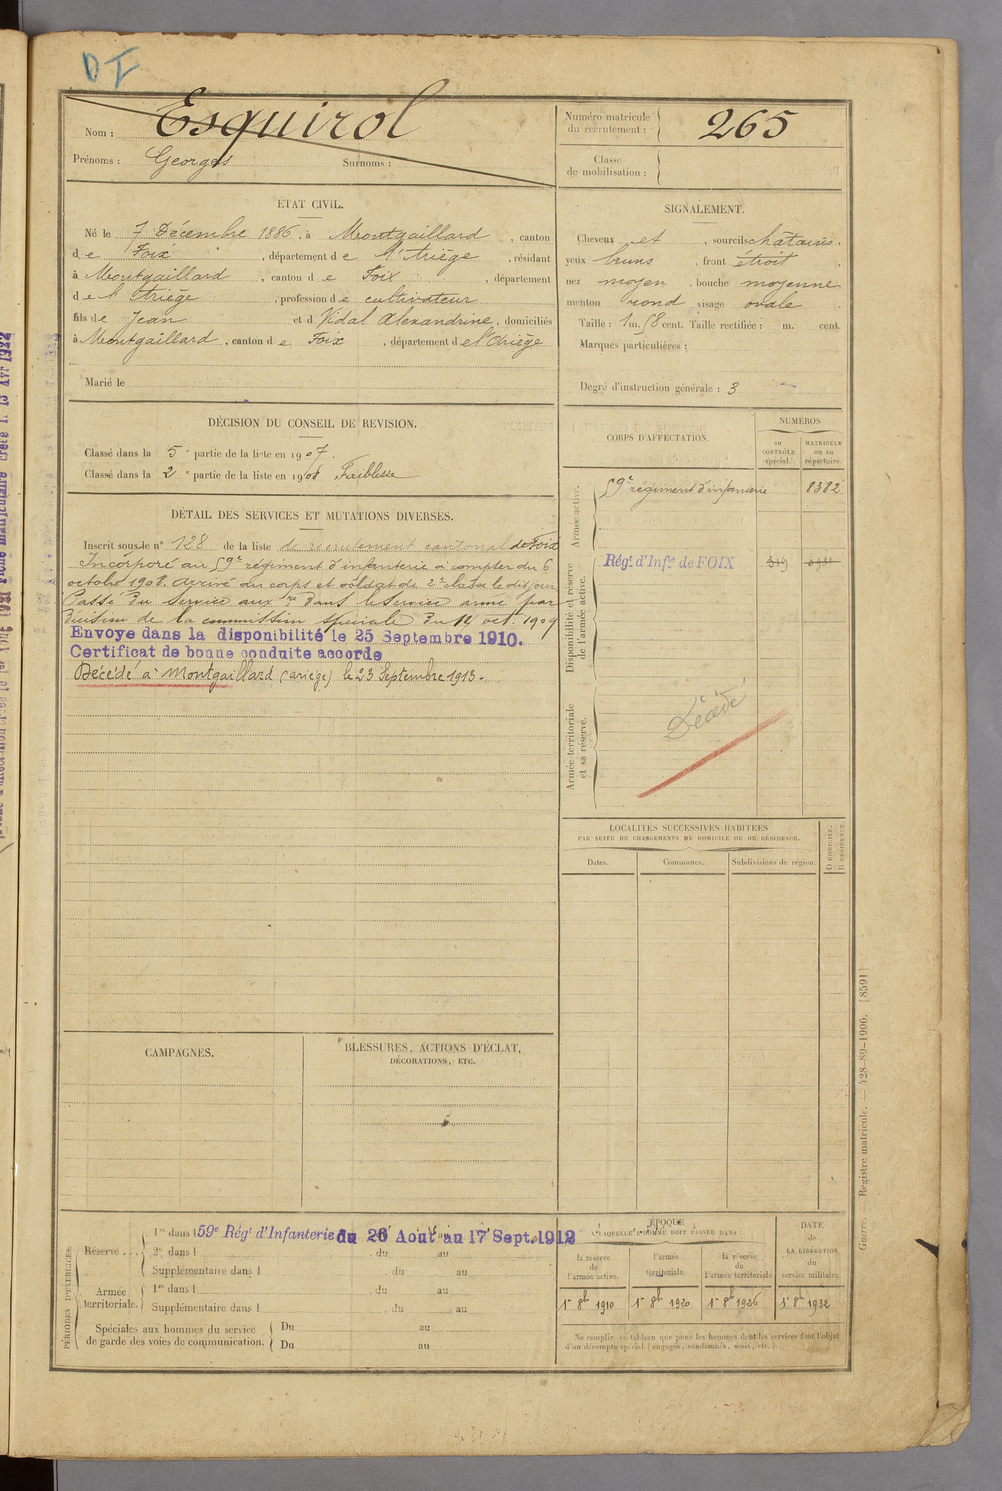 DI
Nom : Esquirol
Prénoms : Georges Surnoms :
Numéro matricule
du recrutement : 265
Classe
de mobilisation :
ÉTAT CIVIL.
Né le 7 Décembre 1886, à Montgaillard, canton
de Foix, département de l'Ariège, résidant
à Montgaillard, canton de Foix, département
de l'Ariège, profession de cultivateur
fils de Jean et d Vidal Alexandrine, domiciliés
à Montgaillard, canton de Foix, département de l'Ariège
Marié le
SIGNALEMENT.
Cheveux et, sourcils châtains.
yeux bruns, front étroit,
nez moyen, bouche moyenne
menton rond visage ovale
Taille : 1 m. 58 cent. Taille rectifiée : m. cent.
Marques particulières :
Degré d'instruction générale : 3
DÉCISION DU CONSEIL DE REVISION.
Classé dans la 5e partie de la liste en 1907.
Classé dans la 2e partie de la liste en 1908 Faiblesse
DÉTAIL DES SERVICES ET MUTATIONS DIVERSES.
Inscrit sous le n° 128 de la liste de recrutement cantonal de Foix
Incorporé au 59e régiment d'infanterie à compter du 6
octobre 1908. Arrivé au corps et soldat de 2e classe le dit jour
Passé du service auxre dans le service armé par
décision de la commission spéciale du 14 oct. 1909
Envoyé dans la disponibilité le 25 Septembre 1910.
Certificat de bonne conduite accordé
Décédé à Montgaillard (Ariège) le 23 Septembre 1913.
CORPS D'AFFECTATION.
NUMÉROS
au
CONTRÔLE
spécial.
MATRICULE
ou au
répertoire.
Armée active.
59e régiment d'infanterie 8382
Disponibilité et réserve
de l'armée active.
Régt. d'Infie de FOIX
Armée territoriale
et sa réserve.
Décédé
LOCALITÉS SUCCESSIVES HABITÉES
PAR SUITE DE CHANGEMENTS DE DOMICILE OU DE RÉSIDENCE.
Dates.
Communes.
Subdivisions de région.
D DOMICILE.
R RÉSIDENCE.
CAMPAGNES.
BLESSURES, ACTIONS D'ÉCLAT,
DÉCORATIONS, ETC.
PÉRIODES D'EXERCICES.
Réserve ...
1re dans l 59e Régt d'Infanterie du 26 Août au 17 Sept. 1912
2e dans l , du au
Supplémentaire dans l du au
Armée
territoriale.
1re dans l du au
Supplémentaire dans l , du au
Spéciales aux hommes du service
de garde des voies de communication.
Du au
Du au
ÉPOQUE
À LAQUELLE L'HOMME DOIT PASSER DANS :
la réserve
de
l'armée active.
l'armée
territoriale.
la réserve
de
l'armée territoriale
DATE
de
LA LIBÉRATION
du
service militaire.
1er 8bre 1910
1er 8bre 1920
1er 8bre 1926
1er 8bre 1932
Ne remplir ce tableau que pour les hommes dont les services font l'objet
d'un décompte spécial (engagés, condamnés, omis, etc.).
Guerre. — Registre matricule. — 128-89-1906. [8591]